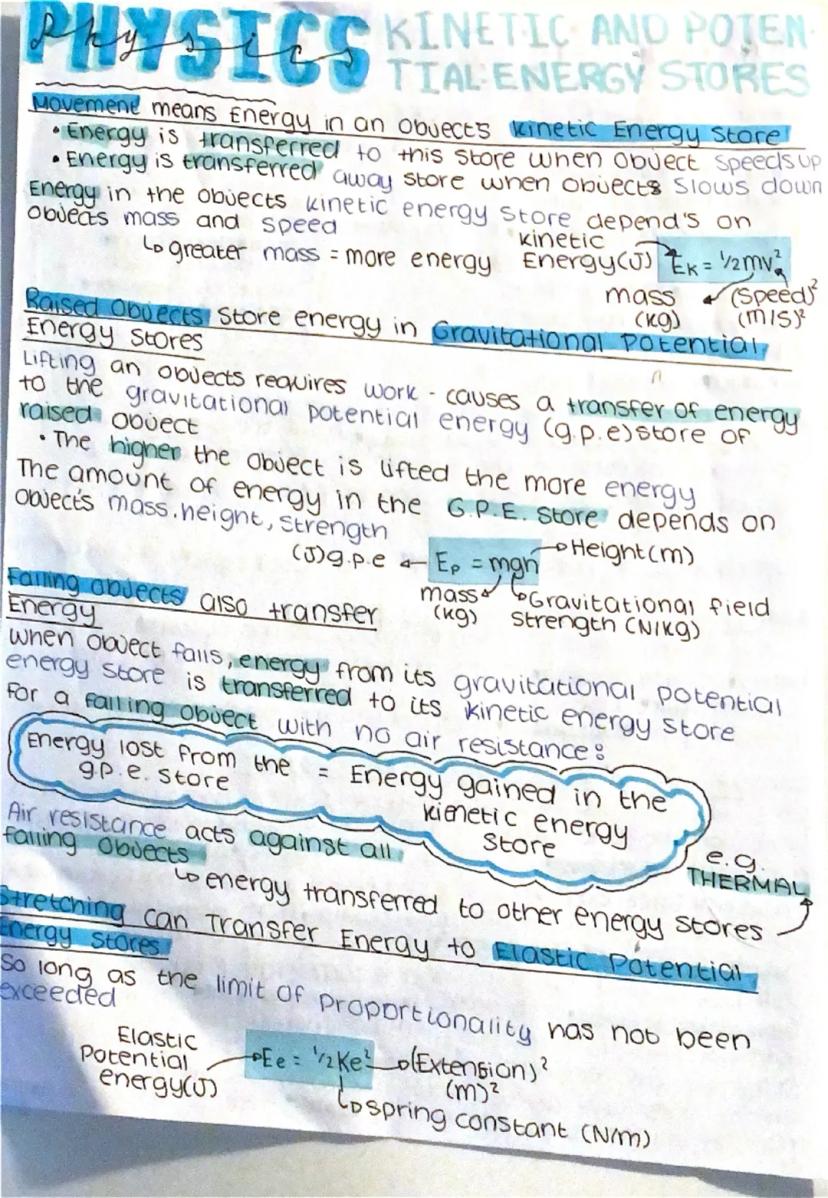 PHYSICS
physics
KINETIC AND POTEN-
TIAL ENERGY STORES
Movement means Energy in an Object's Kinetic Energy Store
• Energy is transferred to this store when object speeds up
• Energy is transferred away store when objects slows down
Energy in the objects kinetic energy store depend's on
objects mass and speed
↳ greater mass = more energy
kinetic
Energy(J)
Ek = ½mv²
mass
(kg)
(Speed)²
(m/s)²
Raised Objects Store energy in Gravitational Potential
Energy Stores
Lifting an objects requires work - causes a transfer of energy
to the gravitational potential energy (g.p.e) store of
raised object
• The higher the object is lifted the more energy
The amount of energy in the G.P.E. Store depends on
object's mass, height, strength
(J) g.p.e ← Ep = mgh → Height (m)
mass
(kg)
Gravitational field
strength (N/kg)
Falling objects also transfer
Energy
when object falls, energy from its gravitational potential
energy store is transferred to its kinetic energy store
For a falling object with no air resistance:
Energy lost from the
g.p.e. store
= Energy gained in the
kienetic energy
store
Air resistance acts against all
falling objects
↳ energy transferred to other energy stores
e.g.
THERMAL
Stretching can Transfer Energy to Elastic Potential
Energy Stores
So long as the limit of proportionality has not been
exceeded
Elastic
Potential
energy(J)
Ee = ½Ke²
(Extension)²
(m)²
spring constant (N/m)